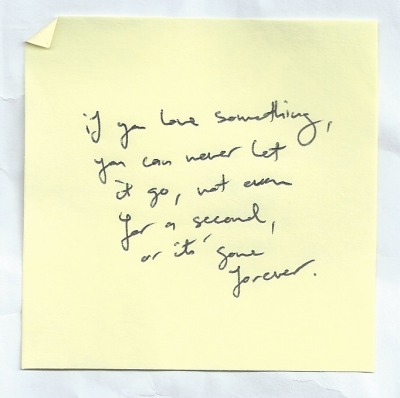 if you love something,
you can never let
it go, not even
for a second,
or it's gone
forever.